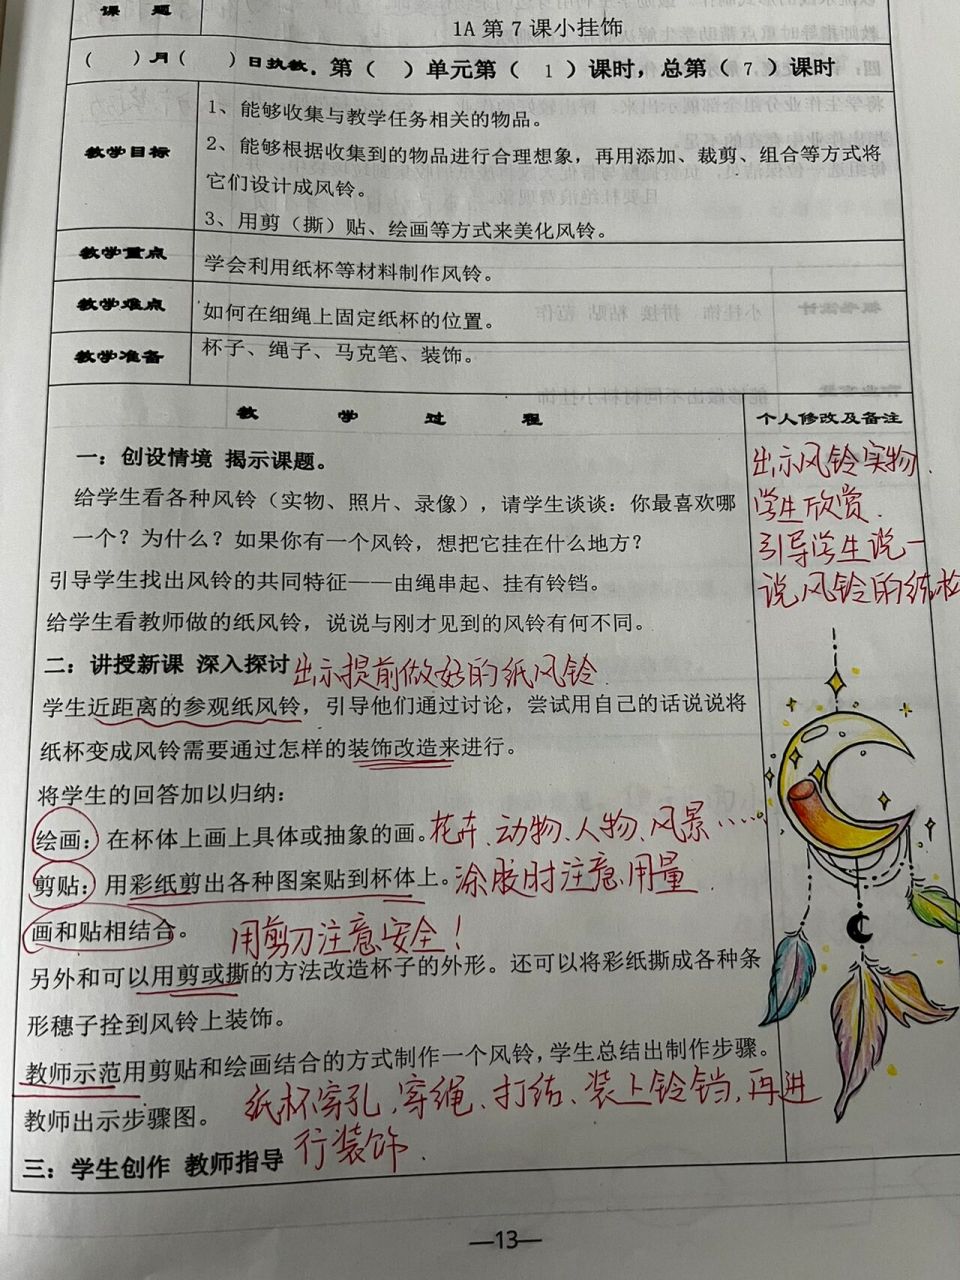 课 题
1A 第 7 课小挂饰
( )月( )日执教. 第( )单元第( 1 )课时，总第( 7 )课时
教学目标
1、能够收集与教学任务相关的物品。
2、能够根据收集到的物品进行合理想象，再用添加、裁剪、组合等方式将
它们设计成风铃。
3、用剪（撕）贴、绘画等方式来美化风铃。
教学重点
学会利用纸杯等材料制作风铃。
教学难点
如何在细绳上固定纸杯的位置。
教学准备
杯子、绳子、马克笔、装饰。
教 学 过 程
个人修改及备注
一：创设情境 揭示课题。
给学生看各种风铃（实物、照片、录像），请学生谈谈：你最喜欢哪
一个？为什么？如果你有一个风铃，想把它挂在什么地方？
引导学生找出风铃的共同特征——由绳串起、挂有铃铛。
给学生看教师做的纸风铃，说说与刚才见到的风铃有何不同。
出示风铃实物.
学生欣赏.
引导学生说一
说风铃的结构
二：讲授新课 深入探讨 出示提前做好的纸风铃.
学生近距离的参观纸风铃，引导他们通过讨论，尝试用自己的话说说将
纸杯变成风铃需要通过怎样的装饰改造来进行。
将学生的回答加以归纳：
绘画：在杯体上画上具体或抽象的画。花卉、动物、人物、风景……
剪贴：用彩纸剪出各种图案贴到杯体上。涂胶时注意用量.
画和贴相结合。 用剪刀注意安全！
另外和可以用剪或撕的方法改造杯子的外形。还可以将彩纸撕成各种条
形穗子拴到风铃上装饰。
教师示范用剪贴和绘画结合的方式制作一个风铃，学生总结出制作步骤。
教师出示步骤图。 纸杯穿孔、穿绳、打结、装上铃铛，再进
行装饰.
三：学生创作 教师指导
—13—